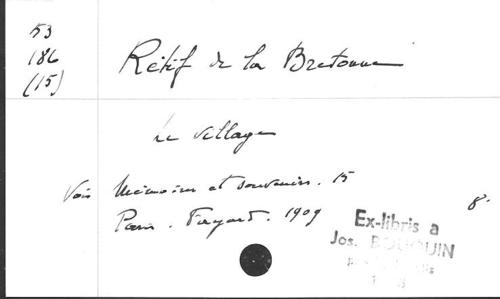 53
186
(15)
Rétif de la Bretonne
Le village
Voir Mémoires et souvenirs. 15
Paris. Fayard. 1909
8°
Ex-libris a
Jos. BOUQUIN